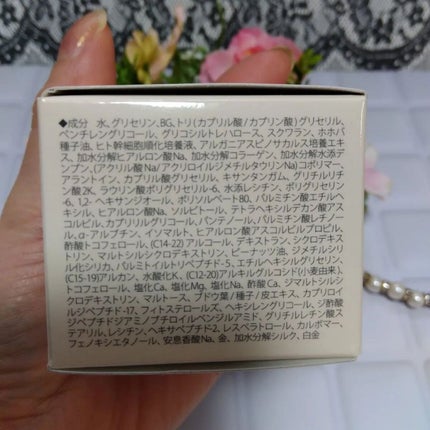 ◆成分 水、グリセリン、BG、トリ(カプリル酸/カプリン酸)グリセリル、
ペンチレングリコール、グリコシルトレハロース、スクワラン、ホホバ
種子油、ヒト幹細胞順化培養液、アルガニアスピノサカルス培養エキ
ス、加水分解ヒアルロン酸Na、加水分解コラーゲン、加水分解水添デ
ンプン、(アクリル酸Na/アクリロイルジメチルタウリンNa)コポリマー、
アラントイン、カプリル酸グリセリル、キサンタンガム、グリチルリチ
ン酸2K、ラウリン酸ポリグリセリル-6、水添レシチン、ポリグリセリン
-6、1,2-ヘキサンジオール、ポリソルベート80、パルミチン酸エチルヘ
キシル、ヒアルロン酸Na、ソルビトール、テトラヘキシルデカン酸アス
コルビル、カプリリルグリコール、パンテノール、パルミチン酸レチノー
ル、α-アルブチン、イソマルト、ヒアルロン酸アスコルビルプロピル、
酢酸トコフェロール、(C14-22)アルコール、デキストラン、シクロデキス
トリン、マルトシルシクロデキストリン、ピーナッツ油、ジメチルシリ
ル化シリカ、パルミトイルトリペプチド-5、エチルヘキシルグリセリン、
(C15-19)アルカン、水酸化K、(C12-20)アルキルグルコシド(小麦由来)、
トコフェロール、塩化Ca、塩化Mg、塩化Na、酢酸Ca、ジマルトシルシ
クロデキストリン、マルトース、ブドウ葉/種子/皮エキス、カプロイ
ルジペプチド-17、フィトステロールズ、ヘキシレングリコール、ジ酢酸
ジペプチドジアミノブチロイルベンジルアミド、グリチルレチン酸ス
テアリル、レシチン、ヘキサペプチド-2、レスベラトロール、カルボマー、
フェノキシエタノール、安息香酸Na、金、加水分解シルク、白金